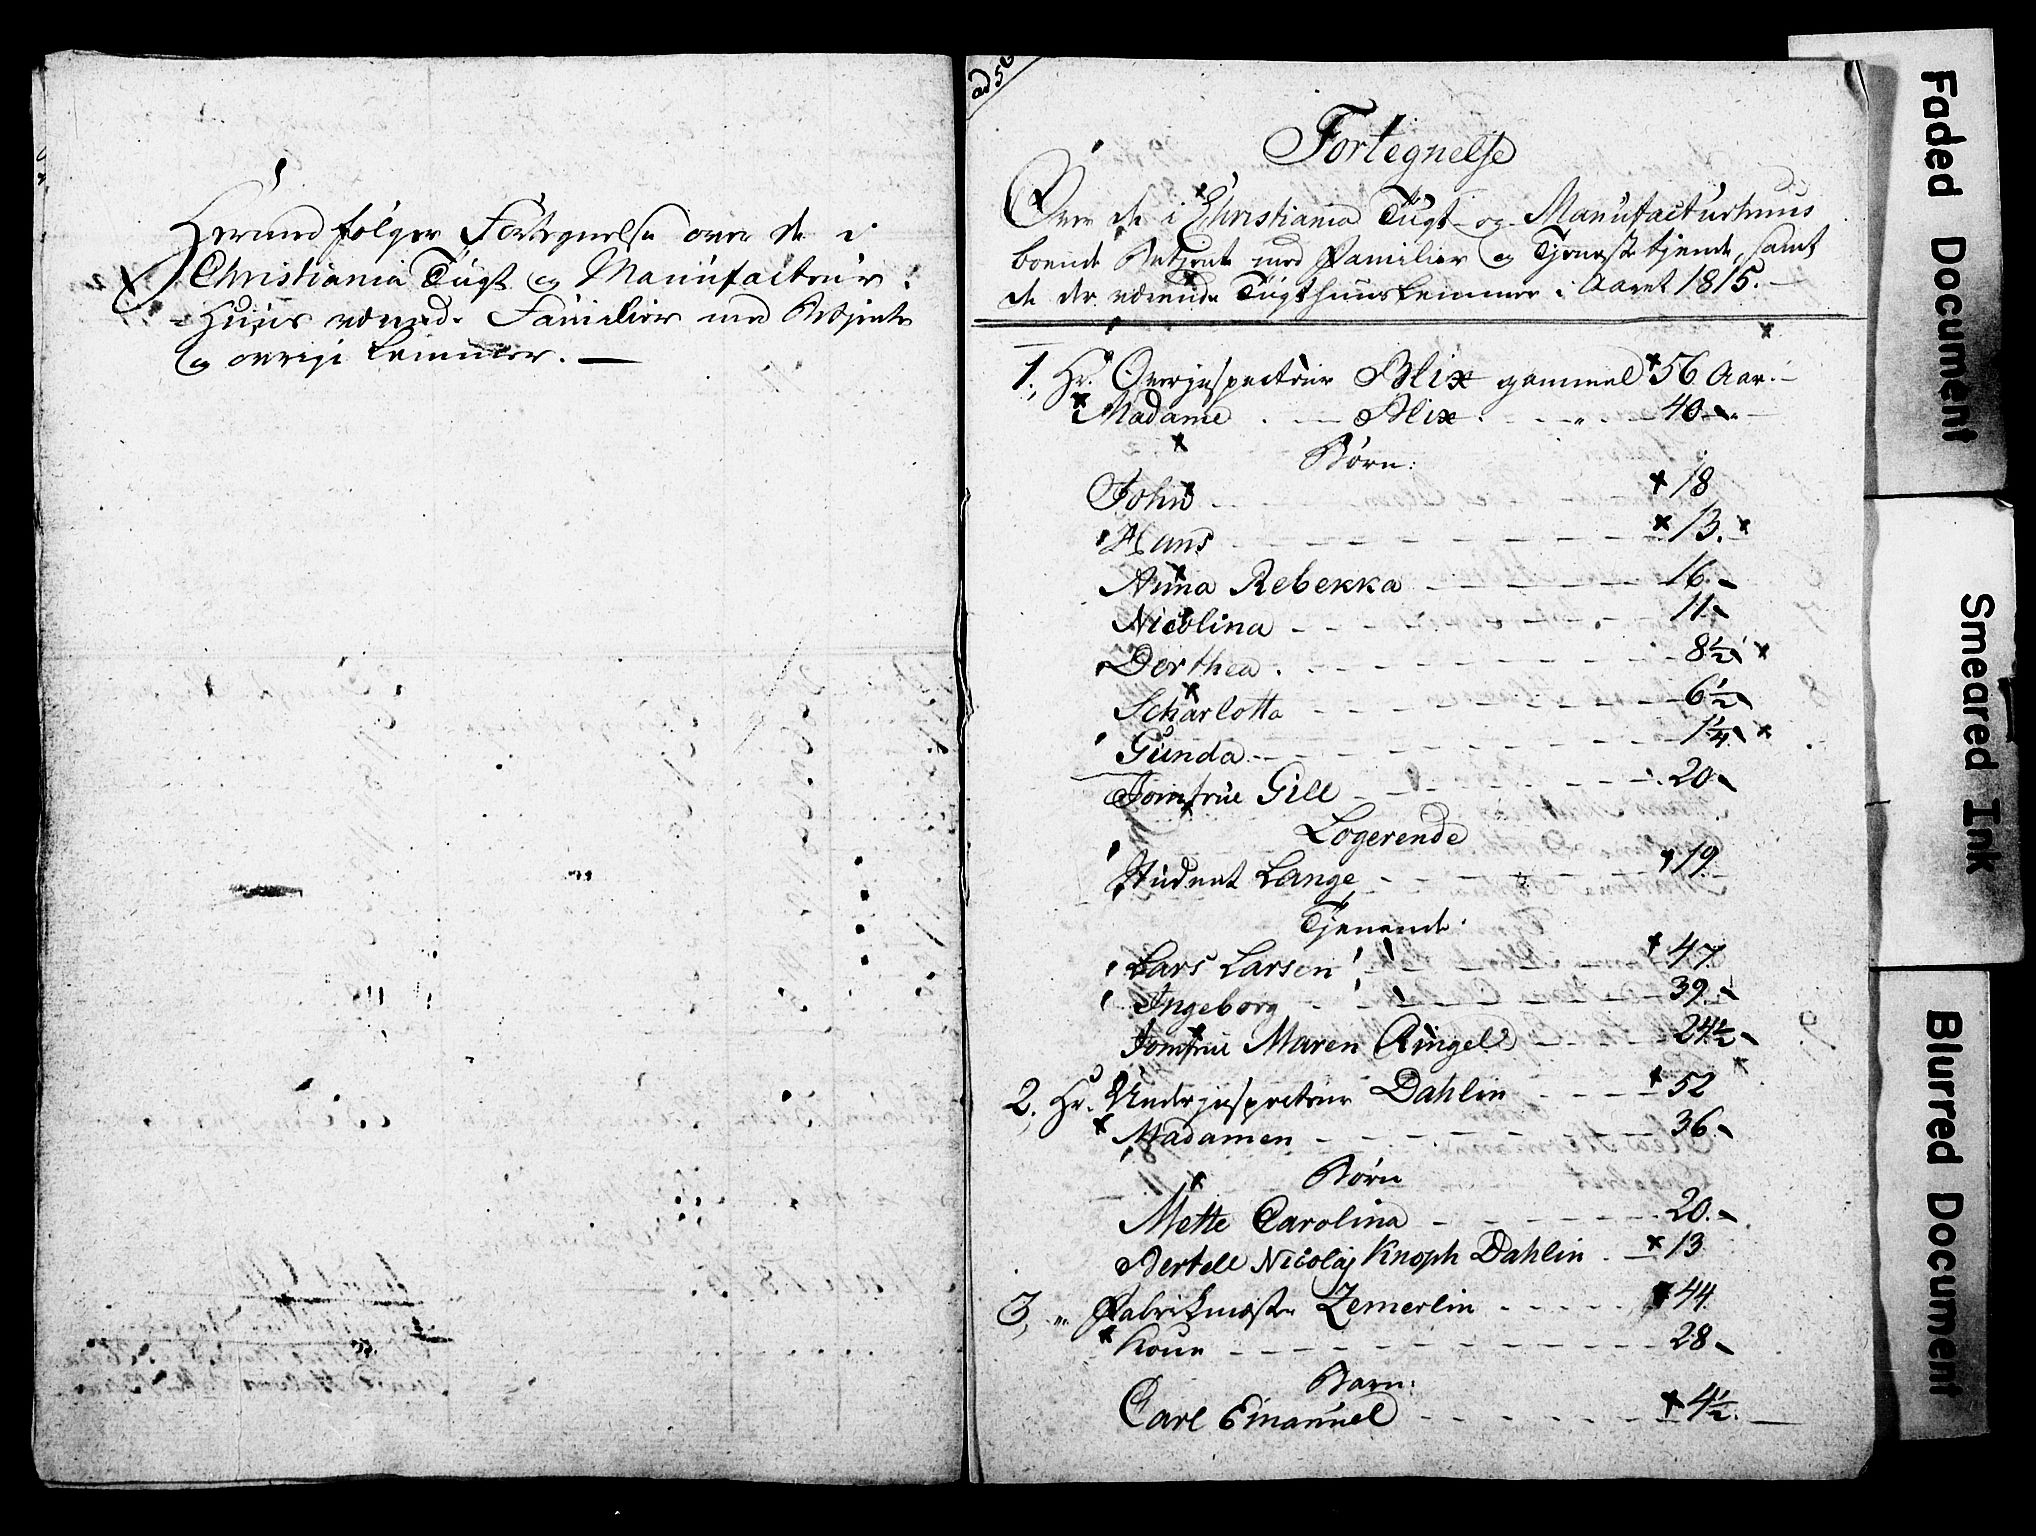 Herved følger Fortegnelse over de i
Christiania Tügt og Manufactur
Huus værende Familier med Betjente
og øvrige Lemmer. —
ad 56
Fortegnelse
Over de i Christiania Tügt- og Manufacturhuus
boende Betjente med Familier og Tjeneste tjende, samt
de der værende Tügthuuslemmer i Aaret 1815. —
1. Hr. Overinspecteur Blix gammel 56 Aar. —
Madame — Blix — 40 —
Børn:
John — 18
Hans — 13.
Anna Rebekka — 16.
Nicolina — 11
Dorthea — 8½
Scharlotta — 6½
Gunda — 1¼
Jomfrue Gill — 20
Logerende
Student Lange — 19
Tjenende
Lars Larsen — 47
Ingeborg — 39
Jomfrue Maren Ringel — 24½
2. Hr. Underinspecteur Dahlin — 52
Madamen — 36
Børn
Mette Carolina — 20.
Bertell Nicolaj Knoph Dahlin — 13
3, " Fabrikmester Zemerlin — 44
Kone — 28
Barn:
Carl Emanuel — 4½. —
Faded Document
Smeared Ink
Blurred Document